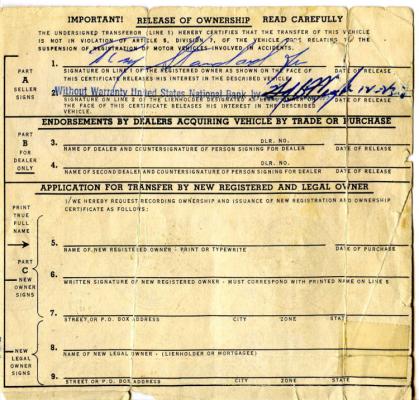 IMPORTANT! RELEASE OF OWNERSHIP READ CAREFULLY
THE UNDERSIGNED TRANSFEROR (LINE 1) HEREBY CERTIFIES THAT THE TRANSFER OF THIS VEHICLE
IS NOT IN VIOLATION OF ARTICLE 5, DIVISION 7, OF THE VEHICLE CODE RELATING TO THE
SUSPENSION OF REGISTRATION OF MOTOR VEHICLES INVOLVED IN ACCIDENTS.
PART
A
SELLER
SIGNS
1.
SIGNATURE ON LINE 1 OF THE REGISTERED OWNER AS SHOWN ON THE FACE OF DATE OF RELEASE
THIS CERTIFICATE RELEASES HIS INTEREST IN THE DESCRIBED VEHICLE.
Without Warranty United States National Bank by
2.
SIGNATURE ON LINE 2 OF THE LIENHOLDER DESIGNATED AS LEGAL OWNER ON DATE OF RELEASE
THE FACE OF THIS CERTIFICATE RELEASES HIS INTEREST IN THE DESCRIBED
VEHICLE.
ENDORSEMENTS BY DEALERS ACQUIRING VEHICLE BY TRADE OR PURCHASE
PART
B
FOR
DEALER
ONLY
3. DLR. NO.
NAME OF DEALER AND COUNTERSIGNATURE OF PERSON SIGNING FOR DEALER DATE OF RELEASE
4. DLR. NO.
NAME OF SECOND DEALER AND COUNTERSIGNATURE OF PERSON SIGNING FOR DEALER DATE OF RELEASE
APPLICATION FOR TRANSFER BY NEW REGISTERED AND LEGAL OWNER
PRINT
TRUE
FULL
NAME
I/WE HEREBY REQUEST RECORDING OWNERSHIP AND ISSUANCE OF NEW REGISTRATION AND OWNERSHIP
CERTIFICATE AS FOLLOWS:
5.
NAME OF NEW REGISTERED OWNER - PRINT OR TYPEWRITE DATE OF PURCHASE
PART
C
NEW
OWNER
SIGNS
6.
WRITTEN SIGNATURE OF NEW REGISTERED OWNER - MUST CORRESPOND WITH PRINTED NAME ON LINE 5
7.
STREET, OR P.O. BOX ADDRESS CITY ZONE STATE
NEW
LEGAL
OWNER
SIGNS
8.
NAME OF NEW LEGAL OWNER - (LIENHOLDER OR MORTGAGEE)
9.
STREET OR P.O. BOX ADDRESS CITY ZONE STATE